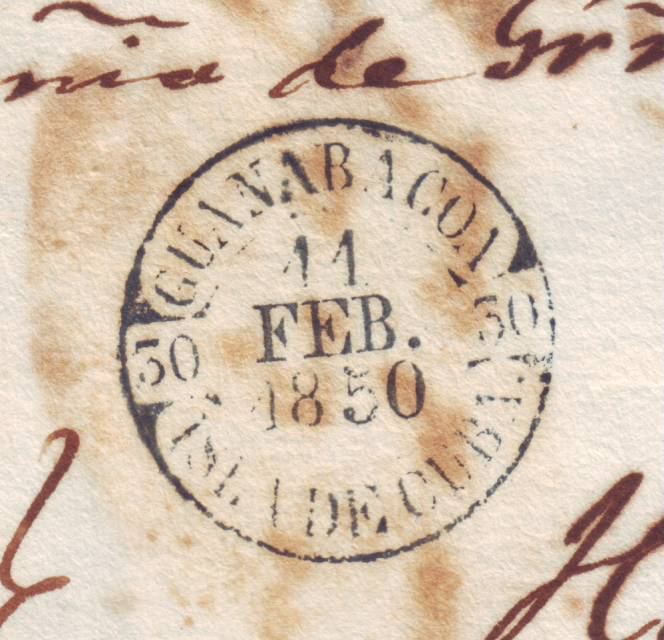 nia de
GUANABACOA
11
FEB.
1850
30 30
ISLA DE CUBA